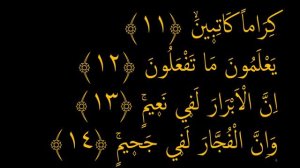 كِرَاماً كَاتِبِينَۙ ﴿١١﴾
يَعْلَمُونَ مَا تَفْعَلُونَ ﴿١٢﴾
اِنَّ الْاَبْرَارَ لَفِي نَعِيمٍۚ ﴿١٣﴾
وَاِنَّ الْفُجَّارَ لَفِي جَحِيمٍۚ ﴿١٤﴾